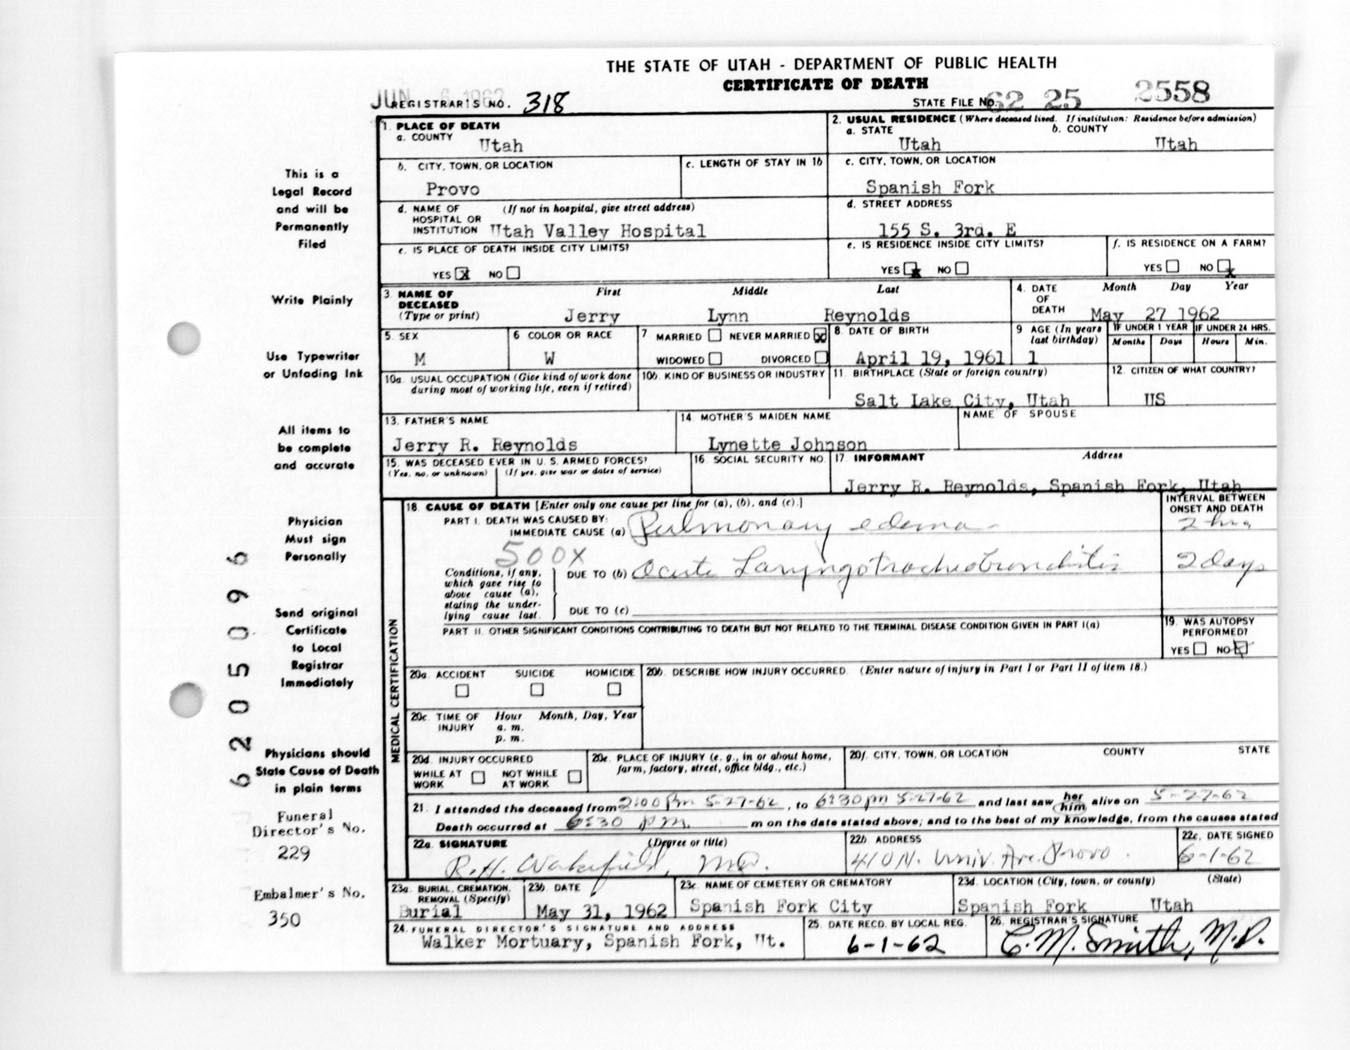 THE STATE OF UTAH - DEPARTMENT OF PUBLIC HEALTH
CERTIFICATE OF DEATH
JUN 6 1962
REGISTRAR'S NO. 318
STATE FILE NO. 62 25 2558
1. PLACE OF DEATH
a. COUNTY
Utah
2. USUAL RESIDENCE (Where deceased lived. If institution: Residence before admission)
a. STATE b. COUNTY
Utah Utah
b. CITY, TOWN, OR LOCATION
Provo
c. LENGTH OF STAY IN 1b
c. CITY, TOWN, OR LOCATION
Spanish Fork
d. NAME OF HOSPITAL OR INSTITUTION (If not in hospital, give street address)
Utah Valley Hospital
d. STREET ADDRESS
155 S. 3rd. E
e. IS PLACE OF DEATH INSIDE CITY LIMITS?
YES X NO
e. IS RESIDENCE INSIDE CITY LIMITS?
YES X NO
f. IS RESIDENCE ON A FARM?
YES NO X
3. NAME OF DECEASED (Type or print)
First Middle Last
Jerry Lynn Reynolds
4. DATE OF DEATH Month Day Year
May 27 1962
5. SEX
M
6 COLOR OR RACE
W
7 MARRIED NEVER MARRIED X
WIDOWED DIVORCED
8 DATE OF BIRTH
April 19, 1961
9 AGE (In years last birthday)
1
IF UNDER 1 YEAR IF UNDER 24 HRS.
Months Days Hours Min.
10a. USUAL OCCUPATION (Give kind of work done during most of working life, even if retired)
10b. KIND OF BUSINESS OR INDUSTRY
11. BIRTHPLACE (State or foreign country)
Salt Lake City, Utah
12. CITIZEN OF WHAT COUNTRY?
US
13. FATHER'S NAME
Jerry R. Reynolds
14. MOTHER'S MAIDEN NAME
Lynette Johnson
NAME OF SPOUSE
15. WAS DECEASED EVER IN U. S. ARMED FORCES?
(Yes, no, or unknown) (If yes, give war or dates of service)
16. SOCIAL SECURITY NO.
17. INFORMANT Address
Jerry R. Reynolds, Spanish Fork, Utah
MEDICAL CERTIFICATION
18. CAUSE OF DEATH [Enter only one cause per line for (a), (b), and (c).]
INTERVAL BETWEEN ONSET AND DEATH
PART I. DEATH WAS CAUSED BY:
IMMEDIATE CAUSE (a) Pulmonary edema 2 hrs
500X
Conditions, if any, which gave rise to above cause (a), stating the underlying cause last.
DUE TO (b) Acute Laryngotracheobronchitis 2 days
DUE TO (c)
PART II. OTHER SIGNIFICANT CONDITIONS CONTRIBUTING TO DEATH BUT NOT RELATED TO THE TERMINAL DISEASE CONDITION GIVEN IN PART I(a)
19. WAS AUTOPSY PERFORMED?
YES NO X
20a. ACCIDENT SUICIDE HOMICIDE
20b. DESCRIBE HOW INJURY OCCURRED. (Enter nature of injury in Part I or Part II of item 18.)
20c. TIME OF INJURY Hour Month, Day, Year
a. m.
p. m.
20d. INJURY OCCURRED
WHILE AT WORK NOT WHILE AT WORK
20e. PLACE OF INJURY (e. g., in or about home, farm, factory, street, office bldg., etc.)
20f. CITY, TOWN, OR LOCATION COUNTY STATE
21. I attended the deceased from 2:00 Pm 5-27-62, to 6:30 pm 5-27-62 and last saw her him alive on 5-27-62
Death occurred at 6:30 p.m. m on the date stated above; and to the best of my knowledge, from the causes stated
22a. SIGNATURE (Degree or title)
R. H. Wakefield, MD.
22b. ADDRESS
410 N. Univ. Ave. Provo.
22c. DATE SIGNED
6-1-62
23a. BURIAL, CREMATION, REMOVAL (Specify)
Burial
23b. DATE
May 31, 1962
23c. NAME OF CEMETERY OR CREMATORY
Spanish Fork City
23d. LOCATION (City, town, or county) (State)
Spanish Fork Utah
24. FUNERAL DIRECTOR'S SIGNATURE AND ADDRESS
Walker Mortuary, Spanish Fork, Ut.
25. DATE RECD. BY LOCAL REG.
6-1-62
26. REGISTRAR'S SIGNATURE
C. M. Smith, M.D.
This is a
Legal Record
and will be
Permanently
Filed
Write Plainly
Use Typewriter
or Unfading Ink
All items to
be complete
and accurate
Physician
Must sign
Personally
Send original
Certificate
to Local
Registrar
Immediately
Physicians should
State Cause of Death
in plain terms
Funeral
Director's No.
229
Embalmer's No.
350
6205096